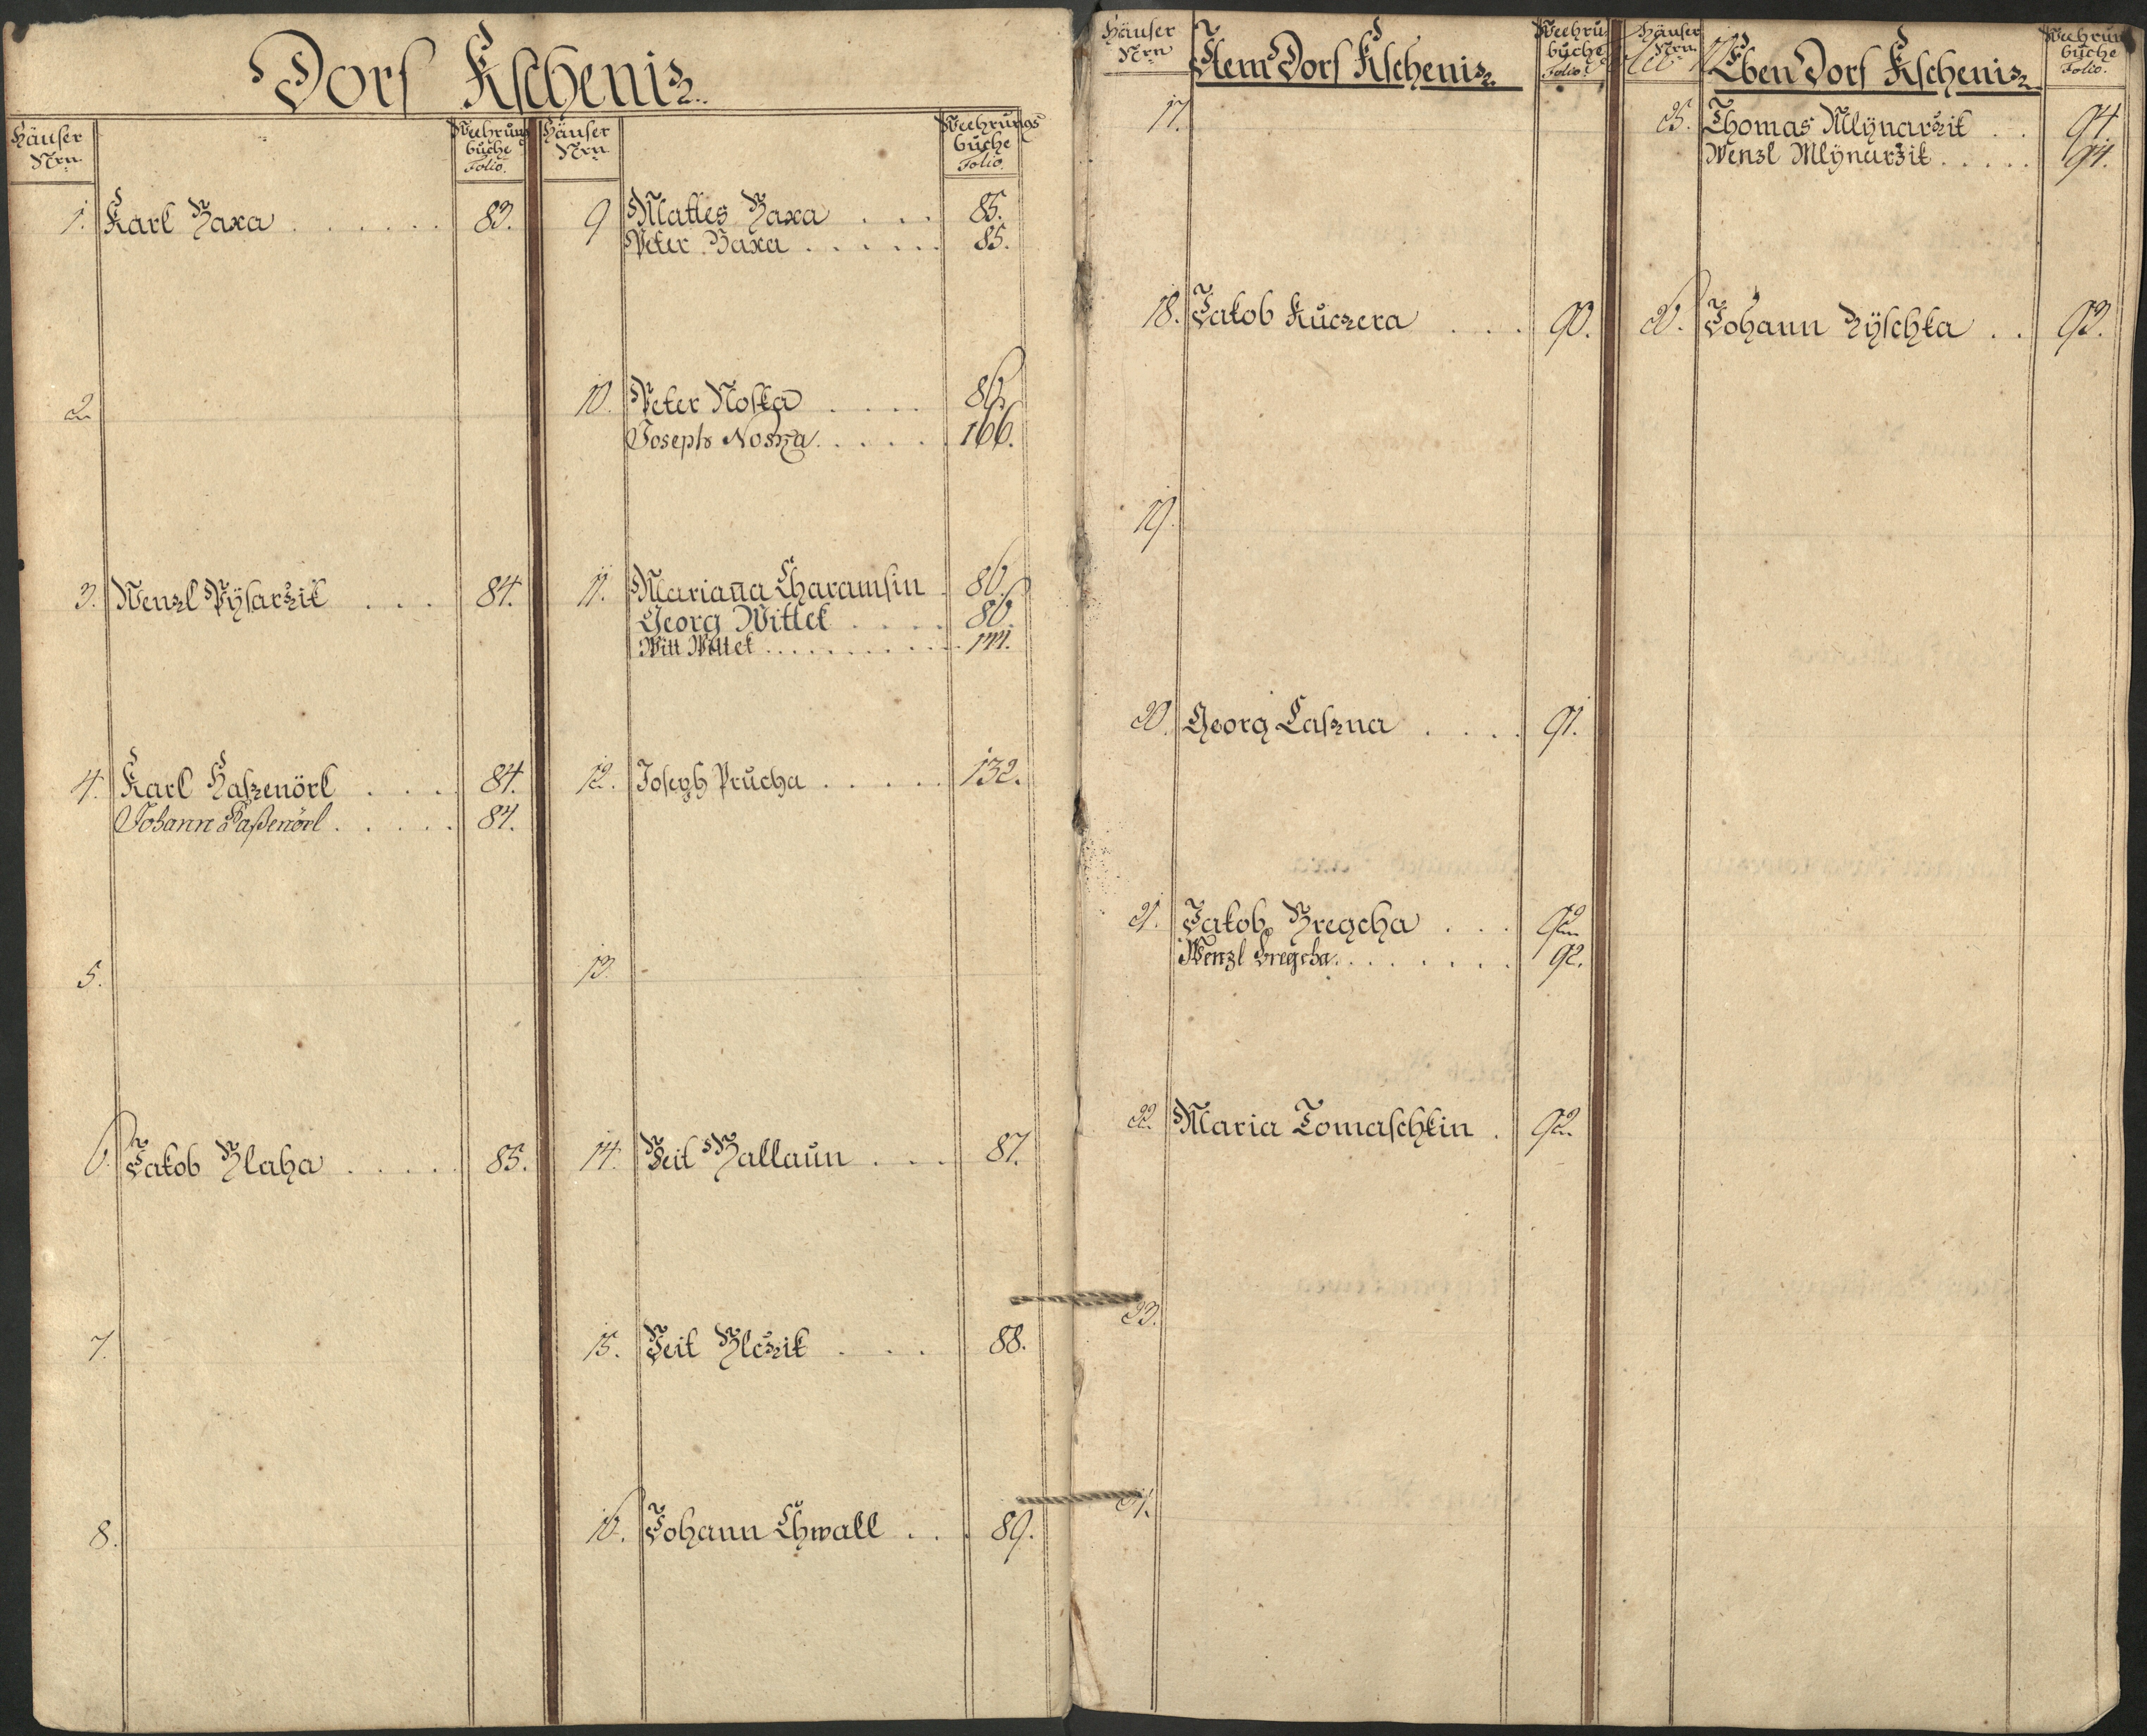 Dorf Kscheniz.
Häuser Nrn.
Weehrungs buche Folio.
1. Karl Baxa . . . . . . 83.
2.
3. Wenzl Pÿsarzik . . . 84.
4. Karl Haszenörl . . . 84.
Johann Haßenörl . . . . . 84.
5.
6. Jakob Blaha . . . . . 85.
7.
8.
Häuser Nrn.
Weehrungs buche Folio.
9 Mattes Baxa . . . 85.
Peter Baxa . . . . . . 85.
10. Peter Noska . . . . 86.
Joseph Noska . . . . . . 166.
11. Mariana Charamsin . 86.
Georg Wittek . . . . 86.
Witt Wittek . . . . . . . . . . . 144.
12. Joseph Průcha . . . . . 132.
13.
14. Veit Ballaun . . . 87.
15. Veit Blczik . . . 88.
16. Johann Chwall . . . 89.
Häuser Nrn
Item Dorf Kscheniz.
Weehru buche Folio.
17.
18. Jakob Kuczera . . . 90.
19.
20. Georg Laszna . . . . 91.
21. Jakob Bregcha . . . 92.
Wenzl Bregcha . . . . . . . . 92.
22. Maria Tomaschkin . 92.
23.
24.
Häuser Nrn.
Eben Dorf Kscheniz
Weehrun buche Folio.
25. Thomas Mlÿnarzik . . 94.
Wenzl Mlÿnarzik . . . . . 94.
26. Johann Zÿschka . . 93.